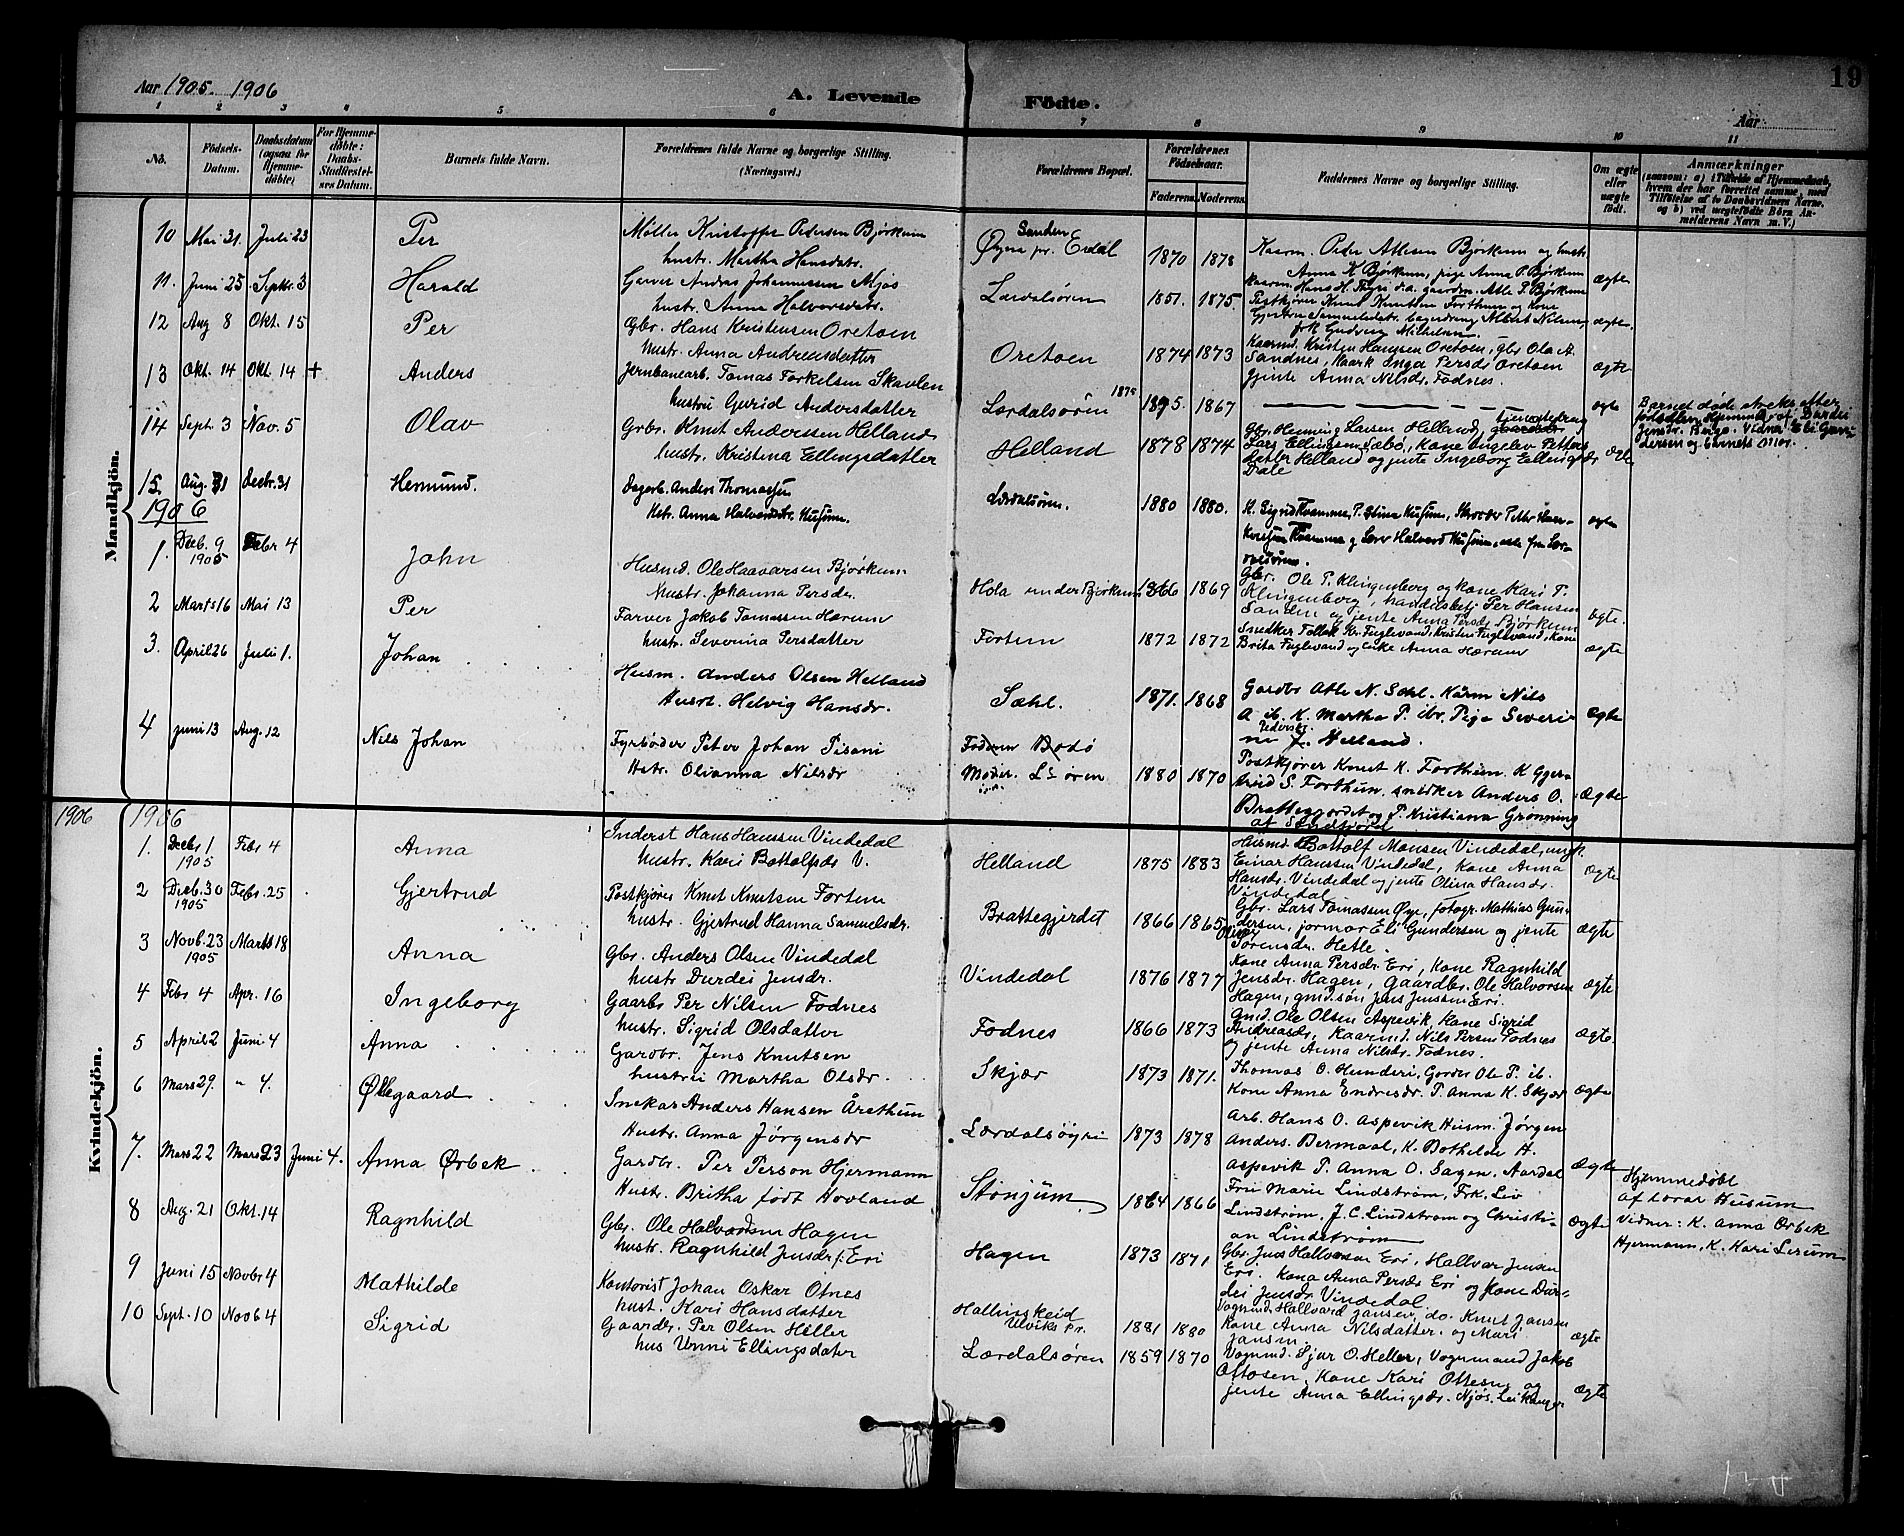 Aar 1905-1906
A. Levende Födte.
19
Aar
1 2 3 4 5 6 7 8 9 10 11
No.
Födsels-Datum.
Daabsdatum (ogsaa for Hjemmedöbte)
For Hjemmedöbte: Daabs-Stadfæstelsens Datum.
Barnets fulde Navn.
Forældrenes fulde Navne og borgerlige Stilling. (Næringsvei.)
Forældrenes Bopæl.
Forældrenes Födselsaar.
Faderens. Moderens.
Faddernes Navne og borgerlige Stilling.
Om ægte eller uægte födt.
Anmærkninger (saasom: a) i Tilfælde af Hjemmedaab, hvem der har forrettet samme, med Tilföielse af to Daabsvidners Navne, og b) ved uægtefödte Börn Anmelderens Navn m. V.)
Mandkjön.
10 Mai 31. Juli 23 Per Möller Kristoffer Pedersen Björkum
hustr. Martha Hansdatr.
Sanden
Øyna pr. Erdal 1870 1878 Kaarm. Peder Atlesen Björkum og hustr.
Anna K Björkum, pige Anna P. Björkum ægte
11. Juni 25 Septbr. 3 Harald Garver Andras Johannessen Mjös
hustr. Anna Halvorsdatr.
Lærdalsören 1851. 1875. Postkjører Knut Knutsen Forthun og kone
Gjertru Samuelsdtr. Albert Nilsen,
frk Gudrun Mikelsen ægte.
12 Aug 8 Okt. 15 Per Gbr. Hans Kristensen Oretoen
hustr. Anna Andreasdatter
Oretoen 1874 1873 Kaarmd. Kristen Hanssen Oretoen, gbr Ola A.
Sandnes, Kaark Inga Persdr Oretoen
Gjente Anna Nilsdr. Fodnes. ægte
13 Okt. 14 Okt. 14 + Anders Jernbanearb. Tomas Torkelsen Skavlen
hustru Gurid Andersdatter
Lærdalsören 1875 1867 ægte
Barnet døde straks efter
fødselen. Hjemmed. af Durdei
Jensdr. Berge. Vidne Eli Gun-
dersen og barnets Mor.
14 Sept. 3 Nov. 5 Olav Grbr. Knut Anderssen Helland
hustr. Kristina Ellingsdatter
Helland 1878 1874 Gbr. Henning Larsen Helland, tjenestedreng
Lars Ellingsen Sæbö, Kone Angelev Petters
datter Helland og jente Ingeborg Ellingsdr
Dale ægte
15. Aug. 31 Decbr. 31 Hermund. Dagarb. Anders Thomassen
Hstr. Anna Halvardsdtr. Husum.
Lærdalsören. 1880 1880. K. Sigrid Kvamme, P. Stina Husum, Skrædder Peter Han-
Kvamme og Lærer Halvard Husum, alle fra Lær-
dalsören. ægte
1906
1. Decb. 9 1905 Febr 4 John Husmd. Ole Haavarsen Björkum
Hustr. Johanna Persdr.
Hola under Björkum 1866 1869 Gbr. Ole P. Klingenberg og kone Kari P.
Klingenberg, handelsbetj Per Hansen
Sanden og jente Anna Persdr Björkum ægte.
2 Marts 16 Mai 13 Per Farver Jakob Tomassen Hærum
hustr. Severina Persdatter
Fortun 1872 1872 Snedker Tollak Kr. Fuglevand, Kristen Fuglevand, Kone
Brita Fuglevand og enke Anna Hærum ægte
3. April 26 Juli 1. Johan Husm. Anders Olsen Helland
Hustr. Helvig Hansdr.
Sæhl. 1871. 1868 Gardbr Atle N. Sæhl. Kårm Nils
A ib. K. Martha P. ibr. Pige Severi-
ne Pedersdr Helland. ægte
4 Juni 13 Aug. 12 Nils Johan Fyrbøder Peter Johan Pisani
Hstr. Olianna Nilsdr
Faderen Bodö
Moder. L. ören 1880 1870 Postkjører Knut K. Forthun. K Gjer-
trud S. Forthun, snedker Anders O.
Bratteggerdet og P. Kristiana Grønning
af Søndfjord ægte
Kvindekjön.
1906 1906
1. Decbr 1 1905 Febr 4 Anna Inderst Hans Hanssen Vindedal
hustr. Kari Bottolfsdr V.
Helland 1875 1883 Husmd Bottolf Monsen Vindedal, ungk.
Einar Hanssen Vindedal, Kone Anna
Hansdr. Vindedal og jente Olina Hansdr.
Vindedal ægte
2 Decb. 30 1905 Febr. 25 Gjertrud Postkjörer Knut Knutsen Fortun
hustr. Gjertrud Hanna Samuelsdr.
Brattegjerdet 1866 1865 Gbr. Lars Tomassen Øye, fotogr. Mathias Gun-
dersen, jormor Eli Gundersen og jente
Sørensdr. Hetle. ægte
3 Novb. 23 1905 Marts 18 Anna Gbr. Anders Olsen Vindedal
hustr Durdei Jensdr.
Vindedal 1876 1877 Kone Anna Persdr. Eri, Kone Ragnhild
Jensdr. Hagen, Gaardbr. Ole Halvorsen
Hagen, gmd.søn Jens Jenssen Eri. ægte
4 Febr 4 Apr. 16 Ingeborg Gaarbr Per Nilsen Fodnes
hustr. Sigrid Olsdatter
Fodnes 1866 1873 Gmd. Ole Olsen Aspevik, kone Sigrid
Andreasdr., Kaarmd. Nils Persen Fodnes
og jente Anna Nilsdr. Fodnes. ægte
5 April 2 Juni 4 Anna Gardbr. Jens Knutsen
hustru Martha Olsdr.
Skjær 1873 1871. Thomas O. Hunderi, Gardbr Ole P. ib.
Kone Anna Endresdr. P. Anna K. Skjær ægte
6 Mars 29. " 4. Ølegaard Snekar Anders Hansen Årethun
Hustr. Anna Jörgensdr
Lærdalsöyri 1873 1878 Arb. Hans O. Aspevik Husm. Jörgen
Anders. Bermaal, K. Bothilde H.
Aspevik P. Anna O. Sagen, Aardal ægte
7. Mars 22 Mars 23 Juni 4. Anna Ørbek Gardbr. Per Person Hjermann
Hustr. Britha født Hovland
Stönjum 1864 1866 Frü Marie Lindström, Frk. Liv
Lindström, J. C. Lindstrøm og Christi-
an Lindström ægte
Hjemmedøbt
af Lærar Husum
Vidner: K. Anna Ørbek
Hjermann, K. Kari Lerum
8 Aug. 21 Okt. 14 Ragnhild Gbr. Ole Halvardsen Hagen
hustr. Ragnhild Jensdr f. Eri
Hagen 1873 1871 Gbr. Jens Hallvarson Eri, Hallvar Jensen
Eri. Kona Anna Persdr Eri og Kone Dur-
dei Jensdr Vindedal.
9 Juni 15 Novbr 4 Mathilde Kontorist Johan Oskar Otnes
hust. Kari Hansdatter
Hallinskeid
Ulviks pr. 1881 1880 Vognmd. Hallvard Jansen, do. Knut Jansen
Kone Anna Nilsdatter og Mari
Jansen. ægte
10 Sept. 10 Novb 4 Sigrid Gaardbr. Per Olsen Heller
hus Unni Ellingsdater
Lærdalsören 1859 1870 Vognmd. Sjur O. Heller, Vognmand Jakob
Ottosen, Kone Kari Ottesen og
jente Anna Ellingsdr. Njøs, Leikanger ægte